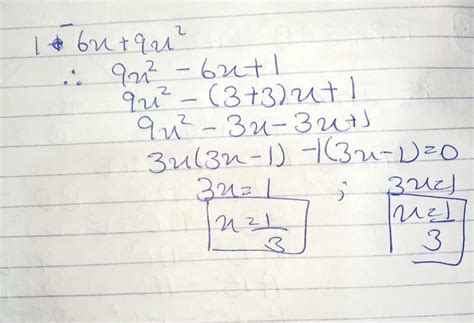 1 - 6x + 9x²
∴ 9x² - 6x + 1
9x² - (3+3)x + 1
9x² - 3x - 3x + 1
3x(3x-1) -1(3x-1)=0
3x=1 ; 3x=1
x=1/3 x=1/3